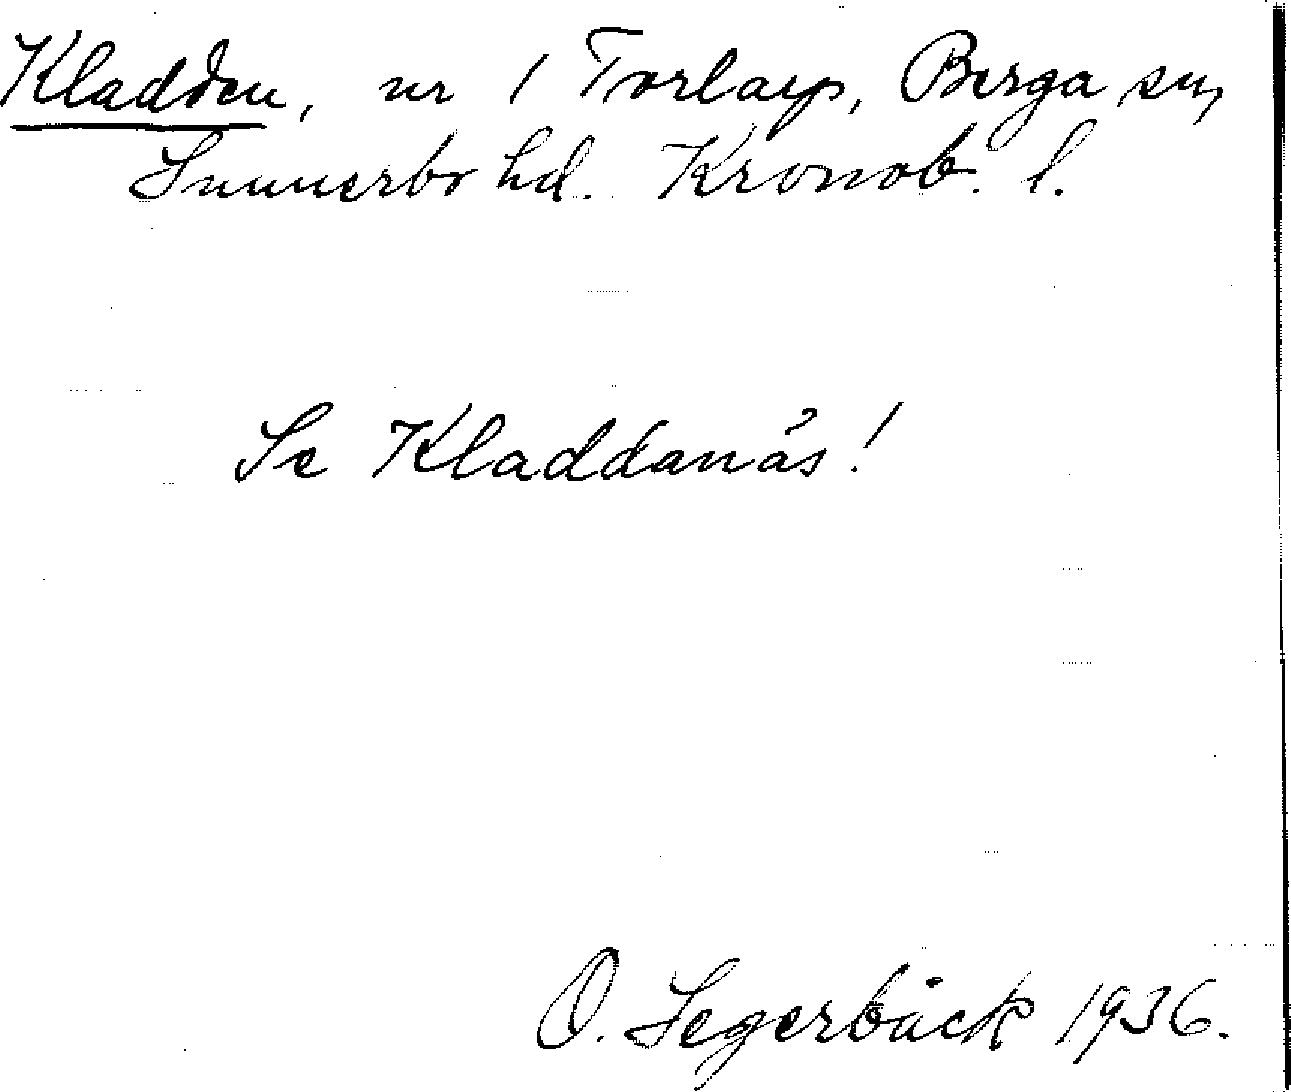 Kladden, nr 1 Torlarp, Berga sn,
Sunnerbo hd. Kronob. l.
Se Kladdanås!
O. Segerbäck 1936.